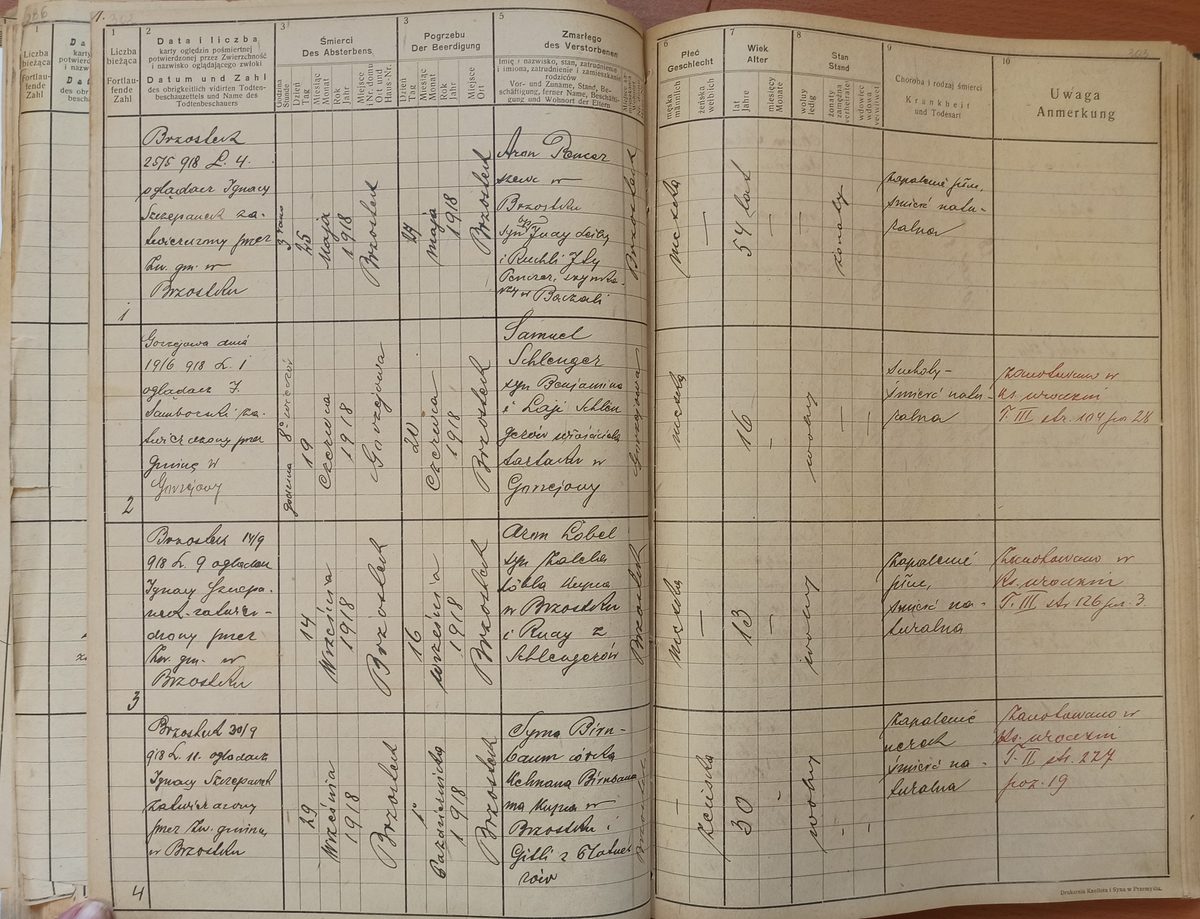 1.
1
Liczba
bieżąca
Fortlau-
fende
Zahl
2
Data i liczba
karty oględzin pośmiertnej
potwierdzonej przez Zwierzchność
i nazwisko oglądającego zwłoki
Datum und Zahl
des obrigkeitlich vidirten Todten-
beschauzettels und Name des
Todtenbeschauers
3
Śmierci
Des Absterbens
Godzina
Stunde
Dzień
Tag
Miesiąc
Monat
Rok
Jahr
Miejsce
i Nr. domu
Ort und
Haus-Nr.
3
Pogrzebu
Der Beerdigung
Dzień
Tag
Miesiąc
Monat
Rok
Jahr
Miejsce
Ort
5
Zmarłego
des Verstorbenen
Imię i nazwisko, stan, zatrudnienie
i imiona, zatrudnienie i zamieszkanie
rodziców
Vor- und Zuname, Stand, Be-
schäftigung, ferner Name, Beschäfti-
gung und Wohnort der Eltern
6
Płeć
Geschlecht
męska
männlich
żeńska
weiblich
7
Wiek
Alter
lat
Jahre
miesięcy
Monate
8
Stan
Stand
wolny
ledig
żonaty
zamężna
verheiratet
wdowiec
wdowa
verwitwet
9
Choroba i rodzaj śmierci
Krankheit
und Todesart
10
Uwaga
Anmerkung
1
Brzostek
25/5 918 L. 4.
oglądacz Ignacy
Szczepanek za-
twierdzony przez
Zw. gm. w
Brzostku
3 rano
25
Maja
1918
Brzostek
27
maja
1918
Brzostek
Aron
szewc w
Brzostku
syn
i Ruchli Ity
w Baczali
Brzostek
męska
—
54 lat
—
—
żonaty
Zapalenie płuc,
śmierć natu-
ralna
2
Gorzejowa dnia
19/6 918 L. 1
oglądacz J.
Samborski za-
twierdzony przez
gminę w
Gorzejowy
godzina 8º wieczór
19
Czerwca
1918
Gorzejowa
20
Czerwca
1918
Brzostek
Samuel
Schlenger
syn Benjamina
i Laji Schlen
gerów właściciela
tartaku w
Gorzejowy
Gorzejowa
męska
16
—
wolny
—
—
Suchoty-
śmierć natu-
ralna
Zanotowano w
Ks. urodzin
T. III str. 104 poz 28
3
Brzostek 14/9
918 L. 9 oglądacz
Ignacy Szczepa-
nek zatwier-
dzony przez
Zw. gm. w
Brzostku
14
Września
1918
Brzostek
16
września
1918
Brzostek
Aron Löbel
syn
kupca
w Brzostku
i z
Schlengerów
Brzostek
męska
—
13
—
wolny
Zapalenie
płuc,
śmierć na-
turalna
Zanotowano w
Ks. urodzin
T. III str 126 poz. 3
4
Brzostek 30/9
918 L. 11. oglądacz
Ignacy Szczepanek
zatwierdzony
przez Zw. gminną
w Brzostku
29
Września
1918
Brzostek
1º
Października
1918
Brzostek
Syma Birn-
baum córka
Kelmana Birnbau
ma kupca w
Brzostku i
Gitli z
rów
Brzostek
—
żeńska
30
—
wolny
—
—
Zapalenie
nerek
śmierć na-
turalna
Zanotowano w
Ks. urodzin
T. II str. 227
poz. 19
Drukarnia Knollera i Syna w Przemyślu.